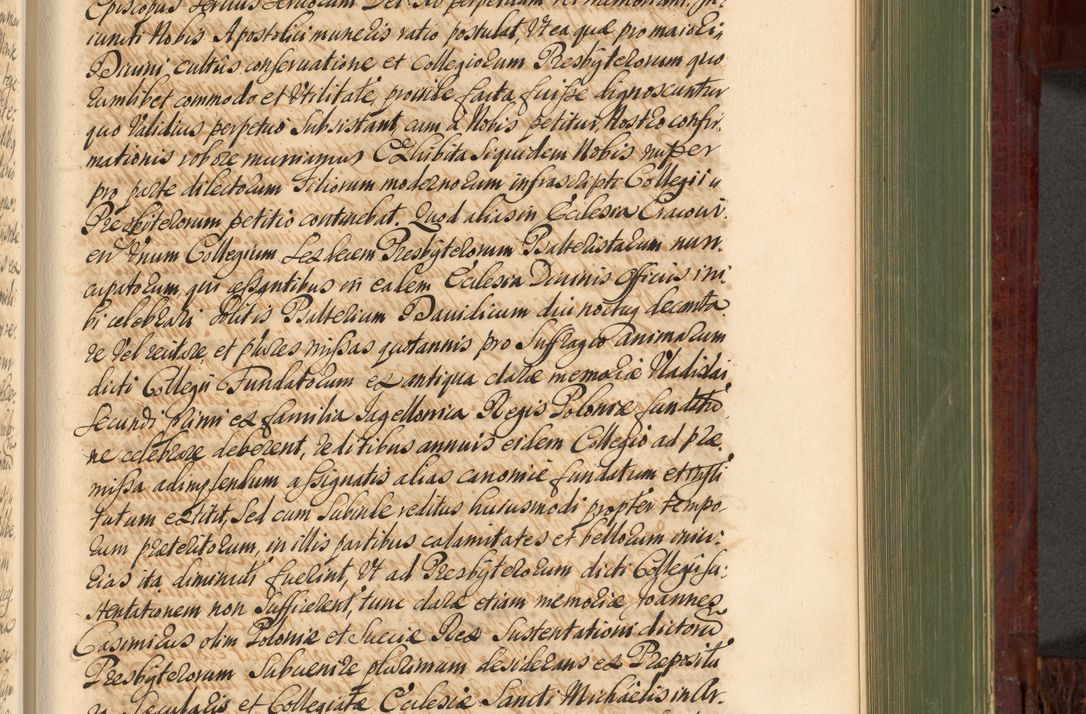 Episcopus Servus Servorum Dei Ad perpetuam rei memoriam. In:
iuncti Nobis Apostolici muneris ratio postulat, Ut ea quæ pro maiori
Divini cultus conseruatione et Collegiorum Presbyterorum quo
rumlibet commodo et Utilitate, provide facta fuisse dignoscuntur
quo Validius perpetuo Subsistant, cum à Nobis petitur, Nostro confir.
mationis robore muniamus Exhibita Siquidem Nobis nuper
pro parte dilectorum Filiorum modernorum infrascripti Collegii
Presbyterorum petitio continebat, Quod alias in Ecclesia Cracovi.
en Vnum Collegium Sexdecem Presbyterorum Psalteristarum nun.
cupatorum, qui assantibus in eadem Ecclesia Diuinis Officiis ini
bi celebrari solitis Psalterium Dauidicum diu noctuq decanta
re Vel recitare, et plures missas quotannis pro Suffragio animarum
dicti Collegii Fundatorum ex antiqua claræ memoriæ Vladislai
Secundi primi ex familia Jagellonica Regis Poloniæ fundatio
ne celebrare deberent, reditibus annuis eidem Collegio ad præ
missa adimplendum assignatis alias canonice fundatum et insti
tutum extitit, Sed cum Subinde reditus huiusmodi propter tempo.
rum præteritorum, in illis partibus calamitates et bellorum iniu:
rias ita diminuti fuerint, Ut ad Presbyterorum dicti Collegii su:
stentationem non Sufficerent, tunc claræ etiam memoriæ Joannes
Casimirus olim Poloniæ et Sueciæ Rex Sustentationi dictorū
Presbyterorum Subuenire plurimum desiderans ex Præpositi
ra Sæcularis et Collegiatæ Ecclesiæ Sancti Michaelis in Ar.